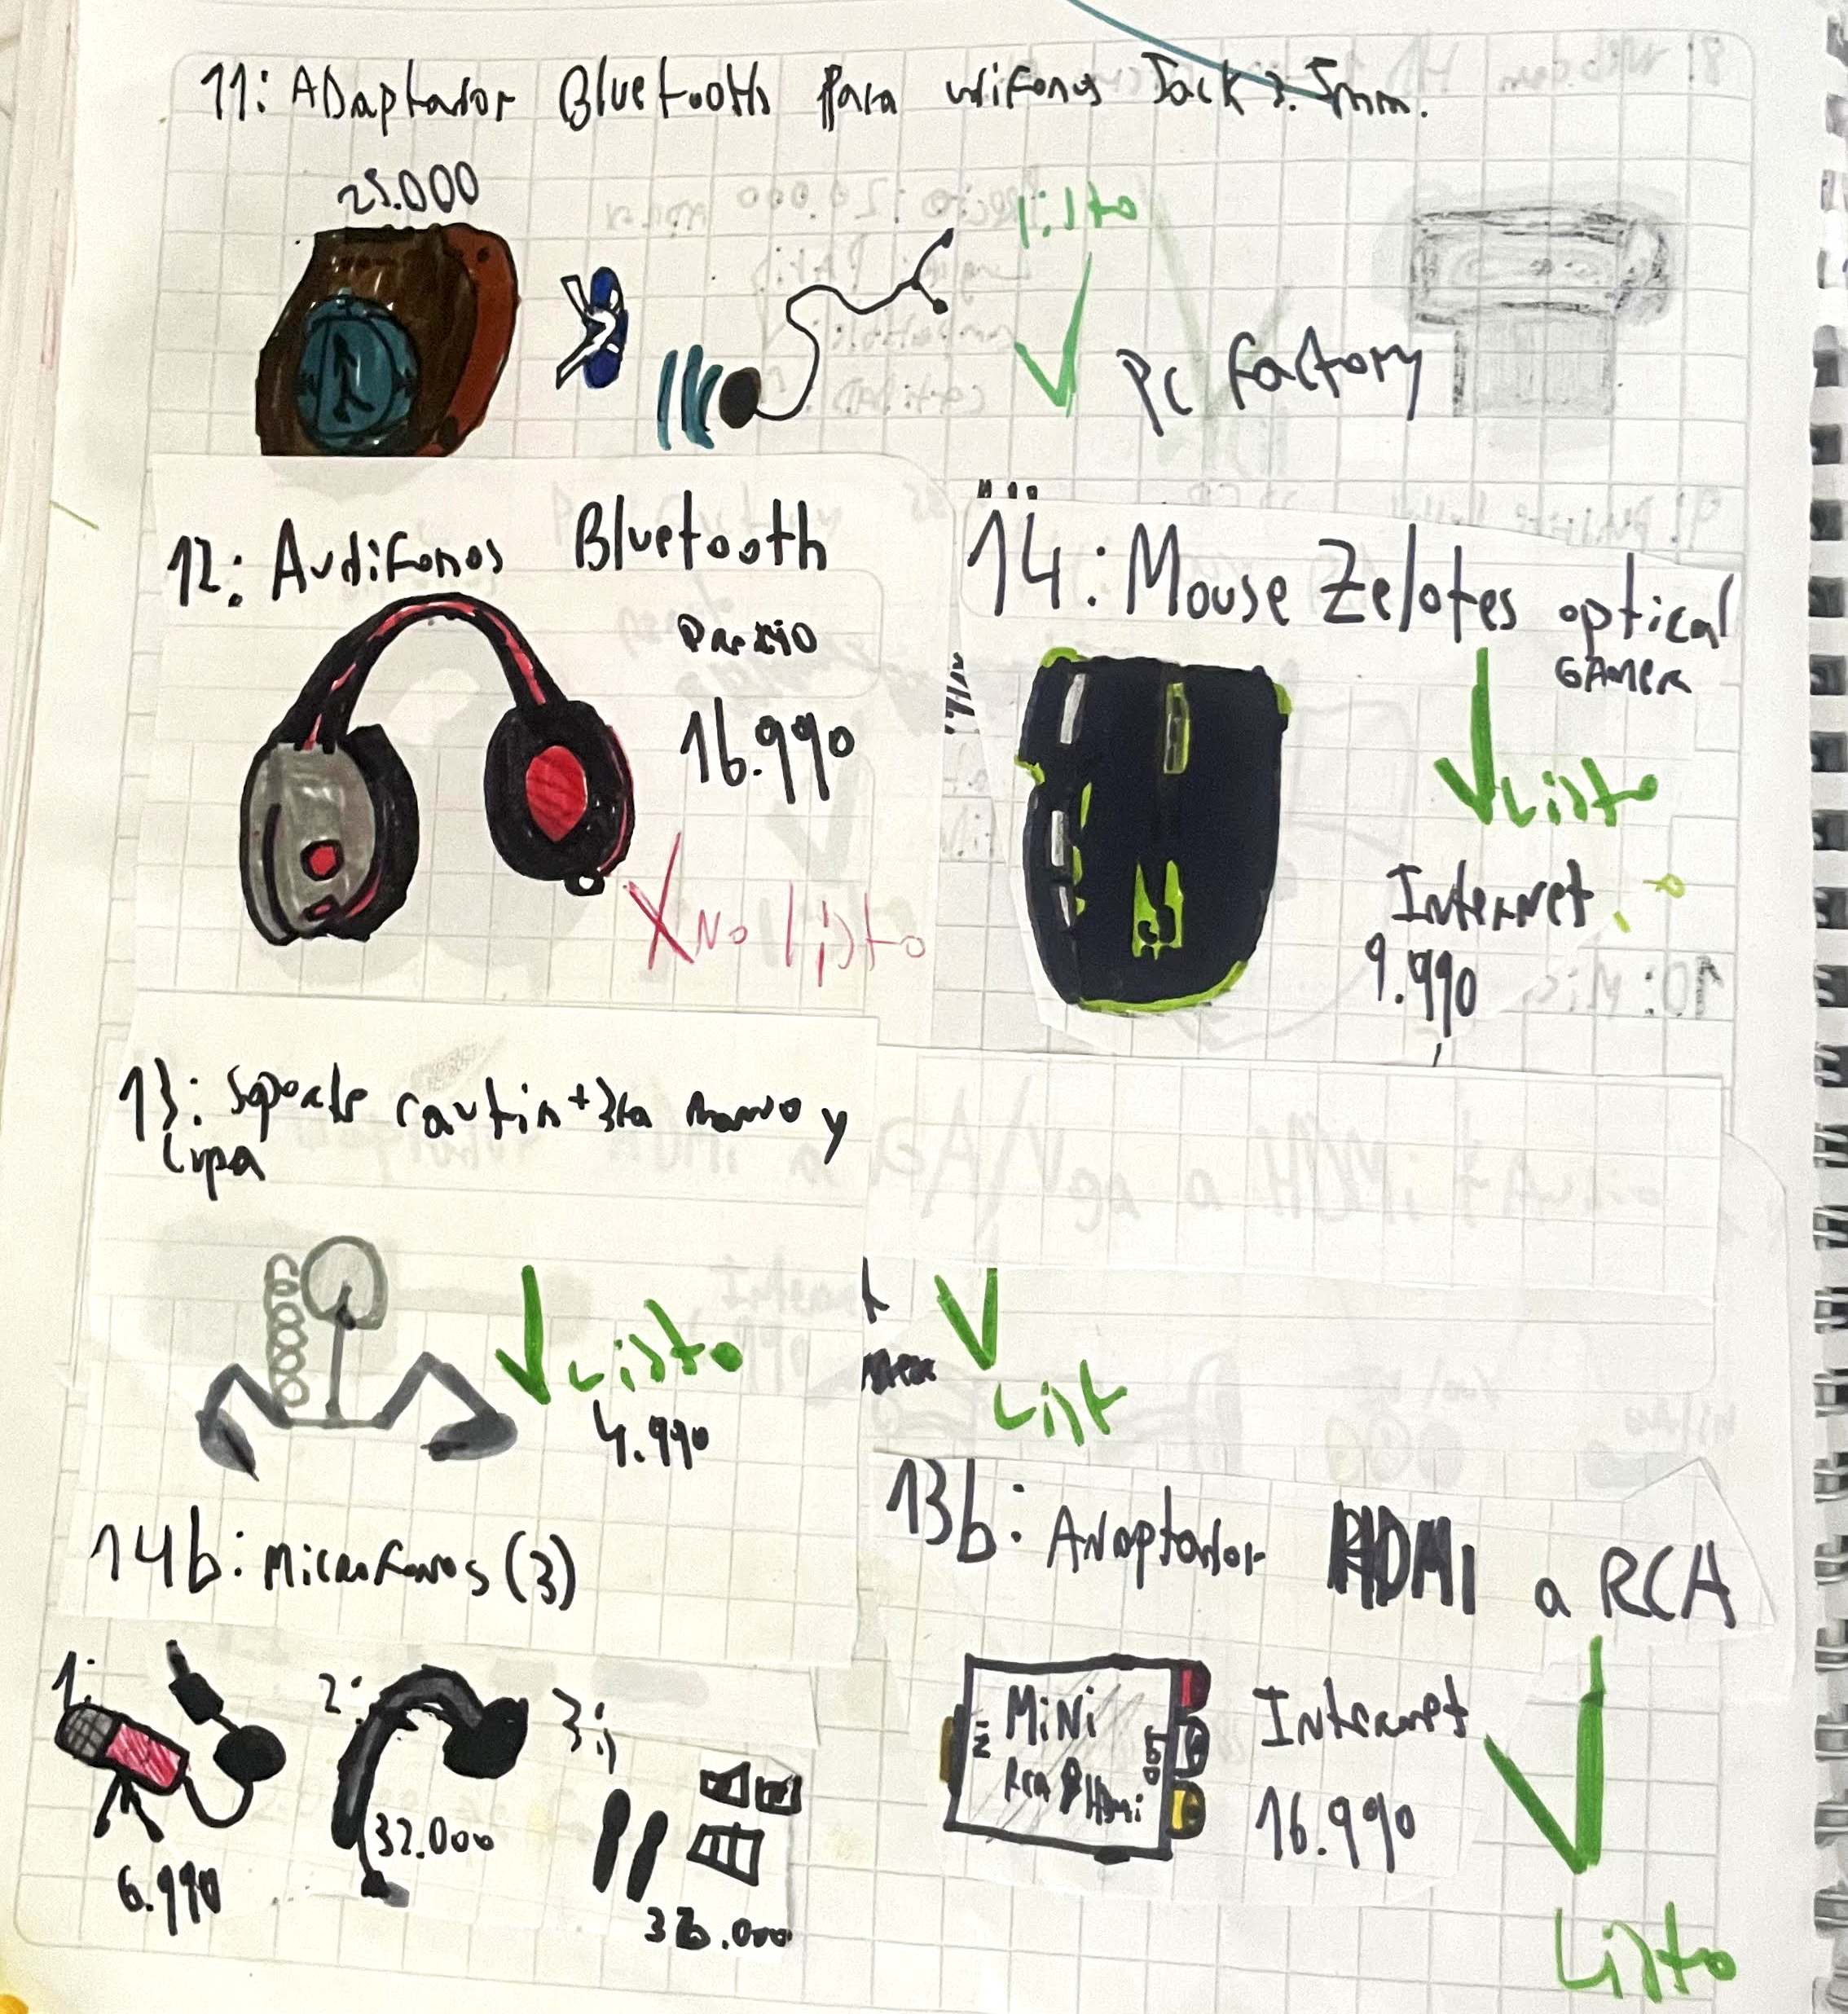 11: ADaptador Bluetooth para
Jack 3.5mm.
25.000
listo
PC factory
12: Audifonos Bluetooth
Precio
16.990
X No listo
14: Mouse Zelotes optical
GAMER
Listo
Internet
9.990
13: Soporte cautin + 3ra mano y
lupa
Listo
4.990
List
14b: Microfonos (3)
1:
6.990
2:
32.000
3:
13b: Adaptador HDMI a RCA
MiNi
Rca HDmi
IN
Internet
16.990
Listo